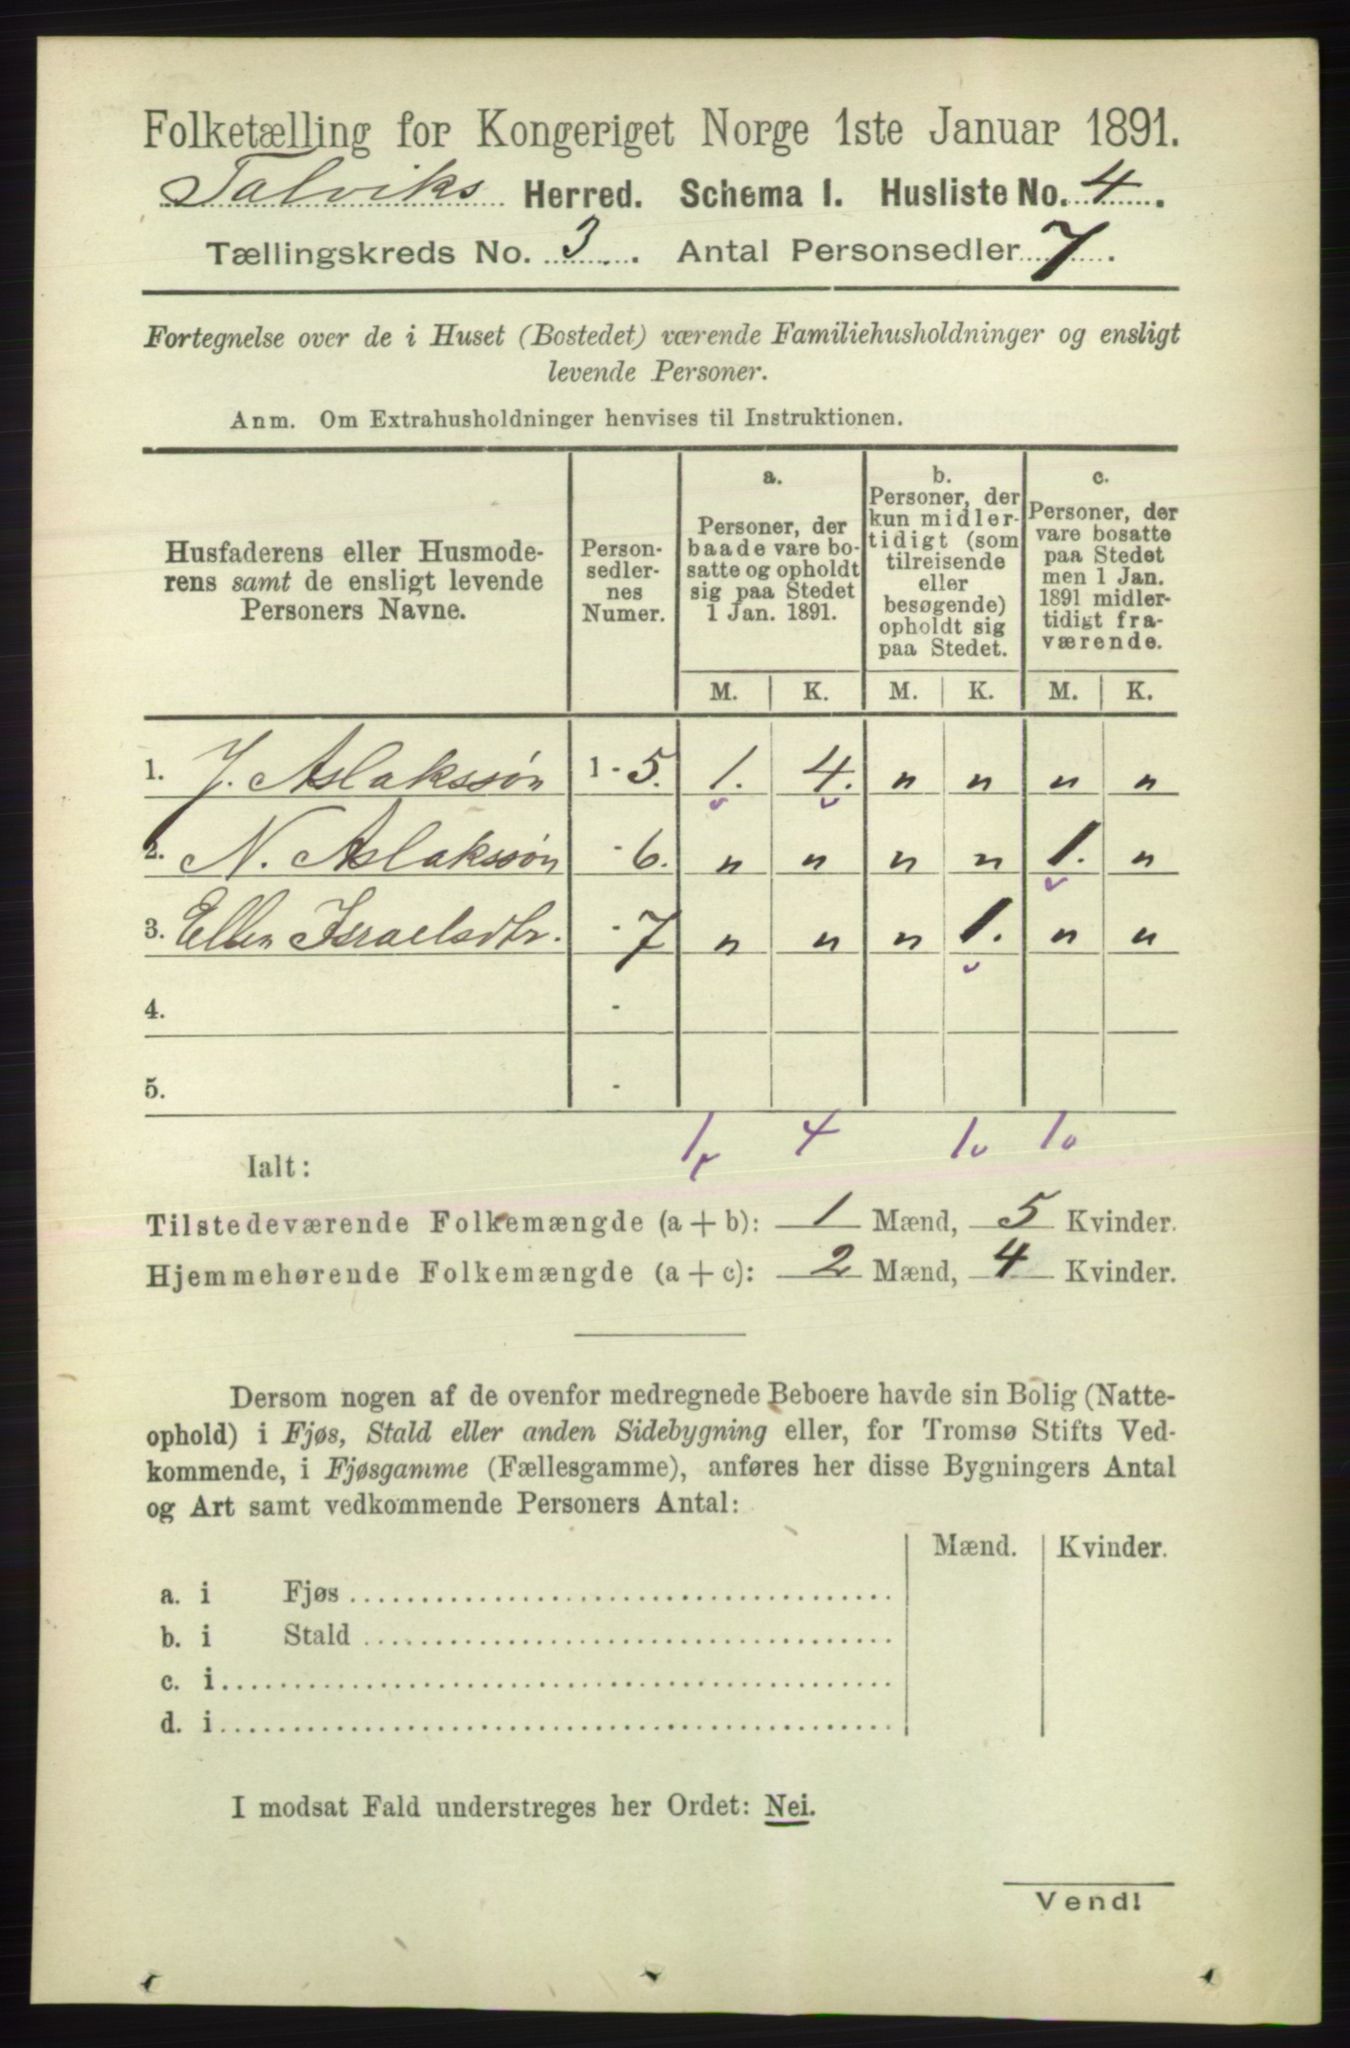 Folketælling for Kongeriget Norge 1ste Januar 1891.
Talviks Herred. Schema I. Husliste No. 4.
Tællingskreds No. 3. Antal Personsedler 7.
Fortegnelse over de i Huset (Bostedet) værende Familiehusholdninger og ensligt
levende Personer.
Anm. Om Extrahusholdninger henvises til Instruktionen.
Husfaderens eller Husmode-
rens samt de ensligt levende
Personers Navne.
Person-
sedler-
nes
Numer.
a.
Personer, der
baade vare bo-
satte og opholdt
sig paa Stedet
1 Jan. 1891.
b.
Personer, der
kun midler-
tidigt (som
tilreisende
eller
besøgende)
opholdt sig
paa Stedet.
c.
Personer, der
vare bosatte
paa Stedet
men 1 Jan.
1891 midler-
tidigt fra-
værende.
M. K. M. K. M. K.
1. J. Aslakssøn 1 - 5. 1. 4. " " " "
2. N. Aslakssøn - 6. " " " " 1. "
3. Ellen Israelsdtr. - 7 " " " 1. " "
4. -
5. -
Ialt: 1 4 1 1
Tilstedeværende Folkemængde (a + b): 1 Mænd, 5 Kvinder.
Hjemmehørende Folkemængde (a + c): 2 Mænd, 4 Kvinder.
Dersom nogen af de ovenfor medregnede Beboere havde sin Bolig (Natte-
ophold) i Fjøs, Stald eller anden Sidebygning eller, for Tromsø Stifts Ved-
kommende, i Fjøsgamme (Fællesgamme), anføres her disse Bygningers Antal
og Art samt vedkommende Personers Antal:
Mænd. Kvinder.
a. i Fjøs
b. i Stald
c. i
d. i
I modsat Fald understreges her Ordet: Nei.
Vend!